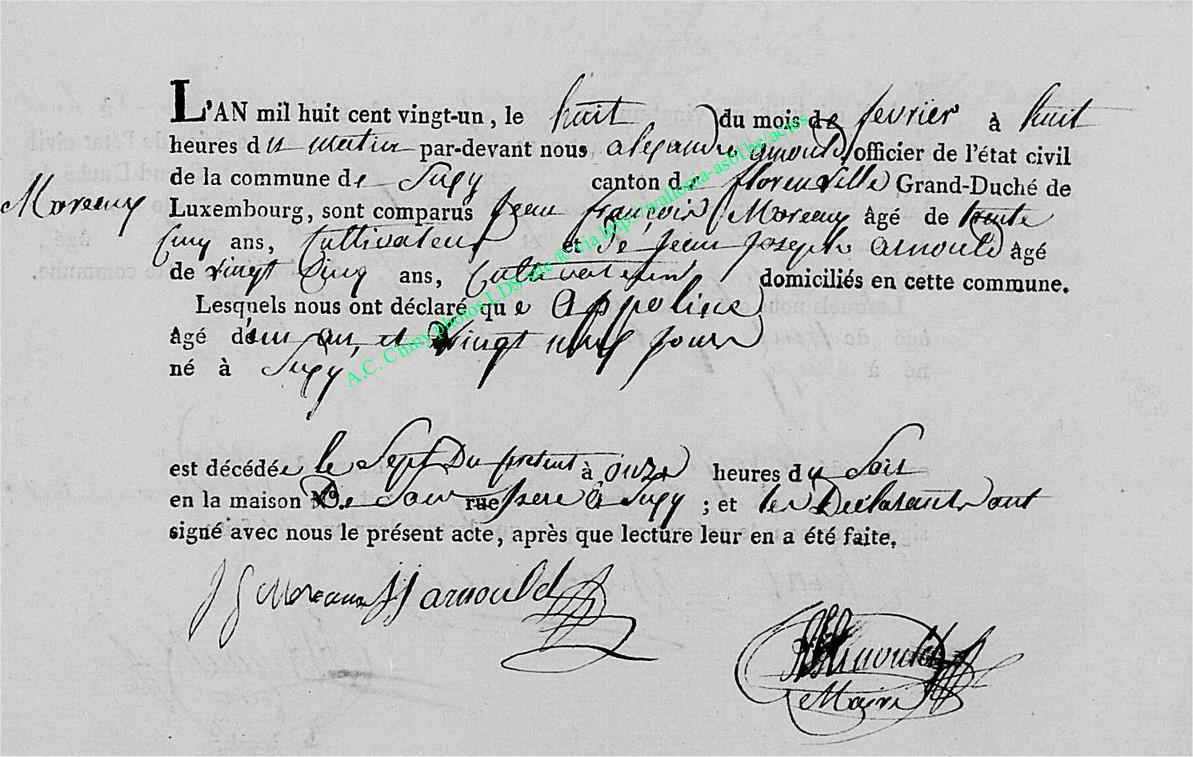 L'AN mil huit cent vingt-un, le huit du mois de fevrier à huit
heures du matin par-devant nous alexandre arnould officier de l'état civil
de la commune de Sugy canton de florenville Grand-Duché de
Moreaux
Luxembourg, sont comparus jean françois Moreaux âgé de trente
Cinq ans, Cultivateur et de jean joseph arnould âgé
de vingt Cinq ans, Cultivateur domiciliés en cette commune.
Lesquels nous ont déclaré que Appoline
âgé d'un an, et vingt neuf jours
né à Sugy
est décédée le Sept Du present à onze heures du Soir
en la maison No. De Son rue pere à Sugy ; et les Declarants ont
signé avec nous le présent acte, après que lecture leur en a été faite.
Moreaux JJ arnould
Arnould
Maire
A.C. Chiny photos LDS via http://wallonia-asbl.be/actes